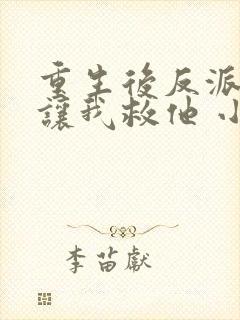 重生後反派
讓我救他 小
李苗獻